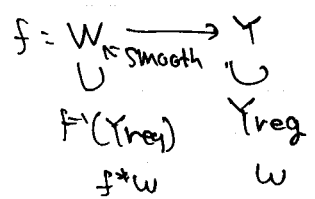 f : W → Y
↖ smooth
∪ ∪
f⁻¹(Yreg) Yreg
f*ω ω